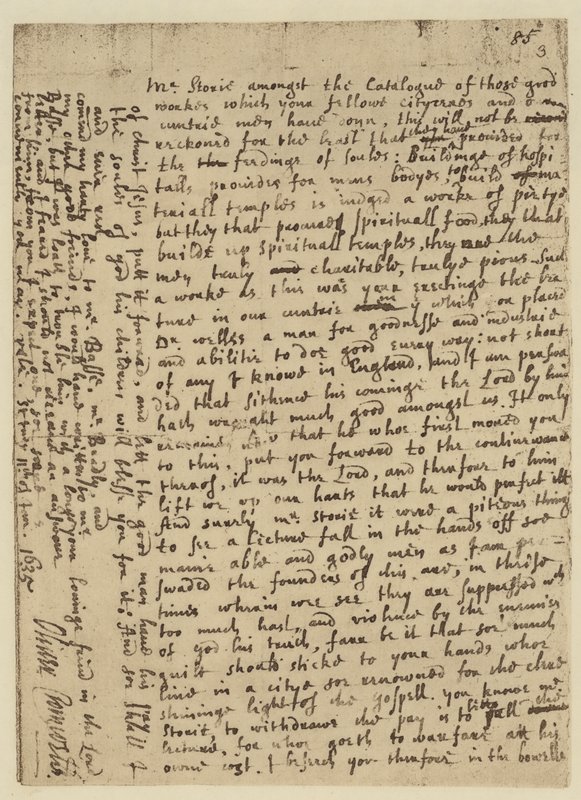 85
3
Mr. Storie amongst the Catalogue of those good
workes which your fellowe cityzenes and our
cuntrie men have donn, this will not be
reckoned for the least that they have provided for
the feedinge of soules: Buildinge of hospi
talls provides for mens bodyes, to build ma
teriall temples is iudged a worke of pietye
but they that procure spirituall food, they that
builde up spirituall temples, they are the
men truly charitable, trulye pious. Such
a worke as this was your erectinge the lec
ture in our cuntrie which you placed
Dr. Welles a man for goodnesse and industrie
and abilitie to doe good every way: not short
of any I knowe in England, and I am perswa
ded that sithence his cominge the Lord by him
hath wrought much good amongst us. It only
remaines now that he whoe first moved you
to this, put you forward to the continewance
thereof, it was the Lord, and therfore to him
lift we up our harts that he would perfect itt
And surely Mr. Storie it were a piteous thinge
to see a lecture fall in the hands off soe
manie able and godly men as I am per-
swaded the founders of this are, in theise
times wherin wee see they are suppressed with
too much hast, and violence by the enemies
of god his truth, farr be it that soe much
guilt should sticke to your hands, whoe
live in a citye soe renowned for the clere
shininge light of the gospell. You knowe Mr.
Storie, to withdrawe the pay is to lett fall the
lecture: for whoe goeth to warfare att his
owne cost. I beseech you therfore in the bowells
of christ Jesus, putt it forward, and lett the good man have his pay.
the soules of god his children will blesse you for it: And soe shall I
and ever rest
your lovinge frind in the Lord
Oliver Cromwell
comend my harty love to Mr. Basse, Mr. Beadly, and
my other good friends. I would have written to Mr.
Basse, but I was loath to trouble him with a longe
letter, and I feared I should not receave an answeare
from him: from you I expect one soe soone as
conveniently you may. vale. 11th of Jan. 1635